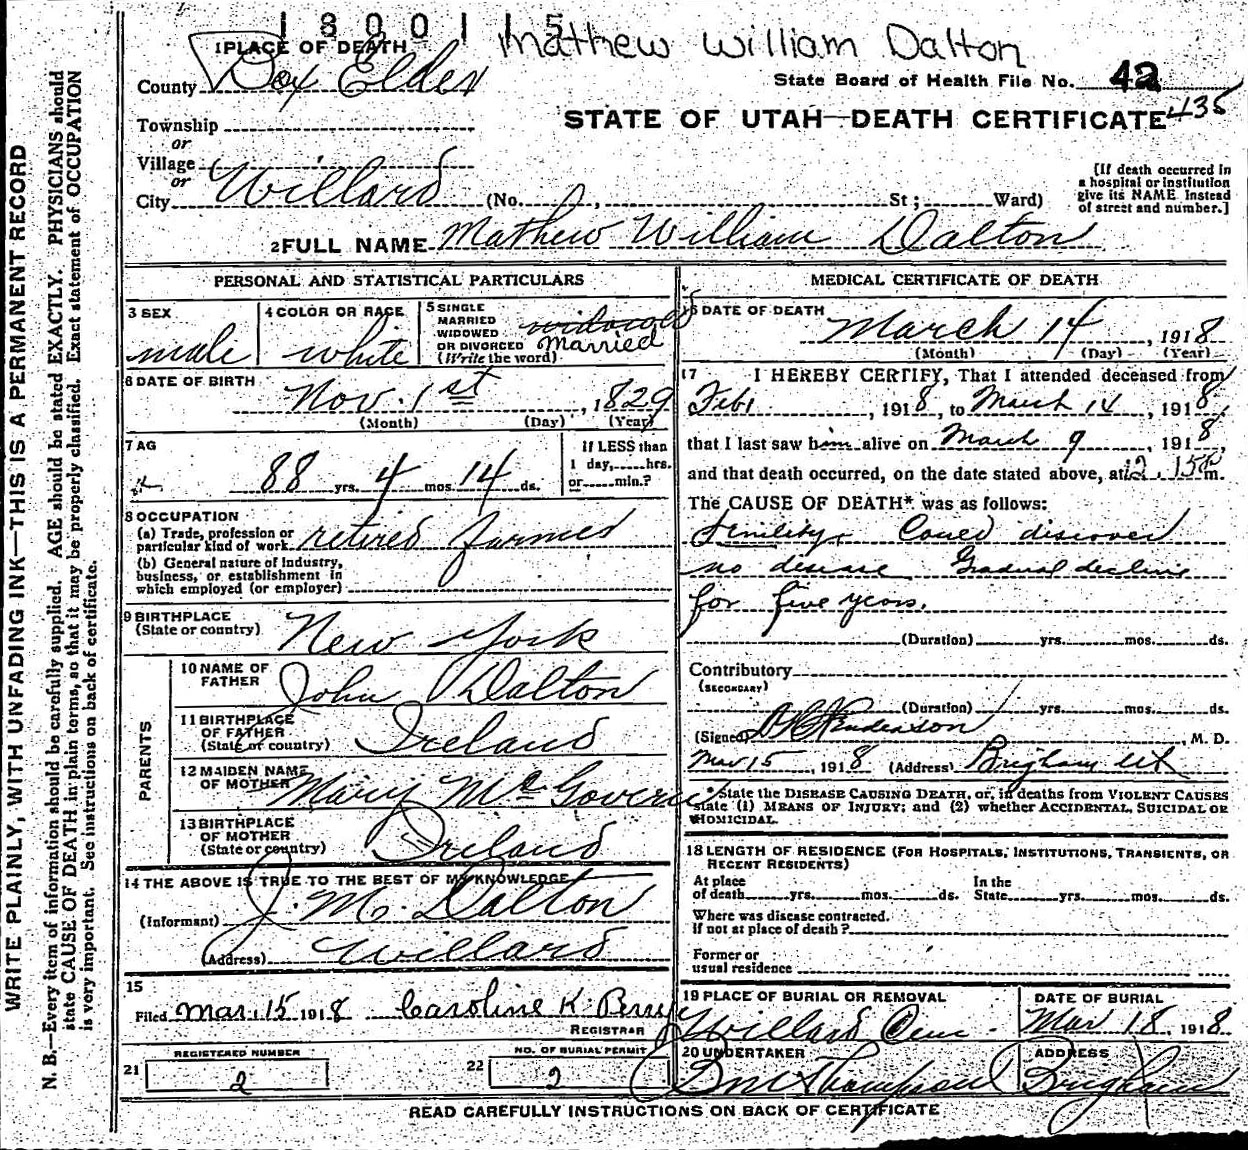 1800115
Mathew William Dalton
1 PLACE OF DEATH
County Box Elder
State Board of Health File No. 42
435
Township
or
Village
or
City Willard (No. , St ; Ward)
STATE OF UTAH—DEATH CERTIFICATE
[If death occurred in
a hospital or institution
give its NAME instead
of street and number.]
2 FULL NAME Mathew William Dalton
PERSONAL AND STATISTICAL PARTICULARS
3 SEX
male
4 COLOR OR RACE
white
5 SINGLE
MARRIED
WIDOWED
OR DIVORCED
(Write the word)
widowed
Married
6 DATE OF BIRTH
Nov. 1st , 1829
(Month) (Day) (Year)
7 AG
88 yrs. 4 mos. 14 ds.
If LESS than
1 day, hrs.
or min.?
8 OCCUPATION
(a) Trade, profession or
particular kind of work retired farmer
(b) General nature of Industry,
business, or establishment in
which employed (or employer)
9 BIRTHPLACE
(State or country) New York
PARENTS
10 NAME OF
FATHER John Dalton
11 BIRTHPLACE
OF FATHER
(State or country) Ireland
12 MAIDEN NAME
OF MOTHER Mary McGovern
13 BIRTHPLACE
OF MOTHER
(State or country) Ireland
14 THE ABOVE IS TRUE TO THE BEST OF MY KNOWLEDGE
(Informant) J. M. Dalton
(Address) Willard
15
Filed Mar. 15 1918 Caroline K. Perry
REGISTRAR
REGISTERED NUMBER
21 2
NO. OF BURIAL PERMIT
22 2
MEDICAL CERTIFICATE OF DEATH
16 DATE OF DEATH
March 14 , 1918
(Month) (Day) (Year)
17 I HEREBY CERTIFY, That I attended deceased from
Feb 1 , 1918, to March 14 , 1918,
that I last saw him alive on March 9 , 1918,
and that death occurred, on the date stated above, at 12.15 m.
The CAUSE OF DEATH* was as follows:
Senility. Could discover
no disease Gradual decline
for five years.
(Duration) yrs. mos. ds.
Contributory
(SECONDARY)
(Duration) yrs. mos. ds.
(Signed) , M. D.
Mar 15 , 1918 (Address) Brigham Ut
*State the DISEASE CAUSING DEATH, or, in deaths from VIOLENT CAUSES
state (1) MEANS OF INJURY; and (2) whether ACCIDENTAL, SUICIDAL OR
HOMICIDAL.
18 LENGTH OF RESIDENCE (FOR HOSPITALS, INSTITUTIONS, TRANSIENTS, OR
RECENT RESIDENTS)
At place
of death yrs. mos. ds.
In the
State yrs. mos. ds.
Where was disease contracted.
If not at place of death?
Former or
usual residence
19 PLACE OF BURIAL OR REMOVAL
Willard Cem.
DATE OF BURIAL
Mar 18 1918
20 UNDERTAKER
Thompson
ADDRESS
Brigham
READ CAREFULLY INSTRUCTIONS ON BACK OF CERTIFICATE
WRITE PLAINLY, WITH UNFADING INK—THIS IS A PERMANENT RECORD
N. B.—Every item of information should be carefully supplied. AGE should be stated EXACTLY. PHYSICIANS should
state CAUSE OF DEATH in plain terms, so that it may be properly classified. Exact statement of OCCUPATION
is very important. See instructions on back of certificate.